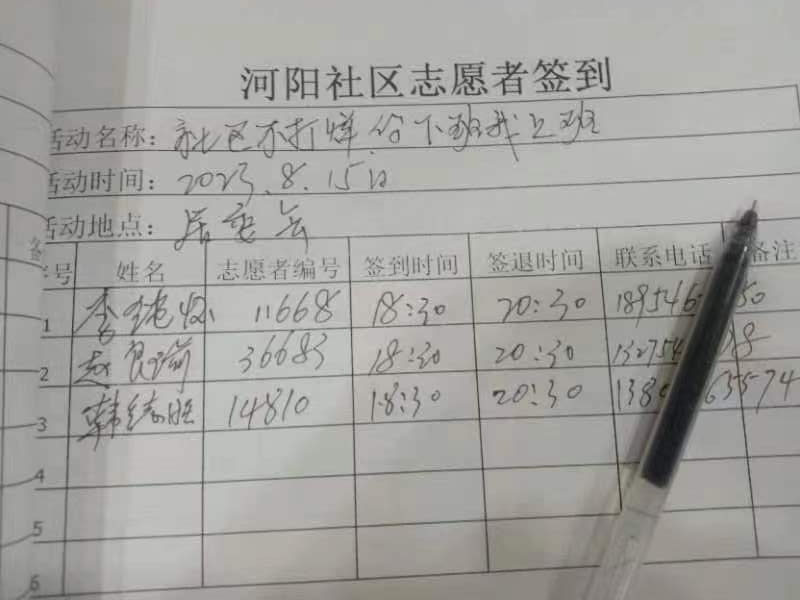 河阳社区志愿者签到
活动名称: 社区不打烊 你下班我上班
活动时间: 2023.8.15日
活动地点: 居委会
序号 姓名 志愿者编号 签到时间 签退时间 联系电话 备注
1 李 11668 18:30 20:30 189546 50
2 赵 36683 18:30 20:30 132754 18
3 韩 14810 18:30 20:30 138 63574
4
5
6